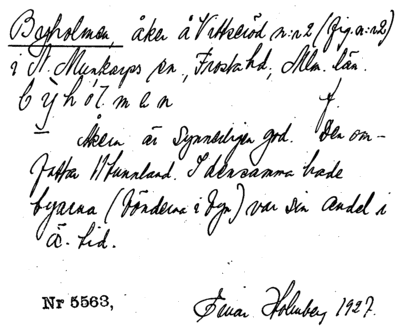 Byholmen, åker å Vittseröd n:r 2 (fig. n:r 2)
i St. Munkarps sn., Frosta hd, Mlm. län.
byhólmen f.
— Åkern är synnerligen god. Den om-
fattar 11 tunnland. I densamma hade
byarna (bönderna i byn) var sin andel i
ä. tid.
Nr 5563, Einar Holmberg 1927.